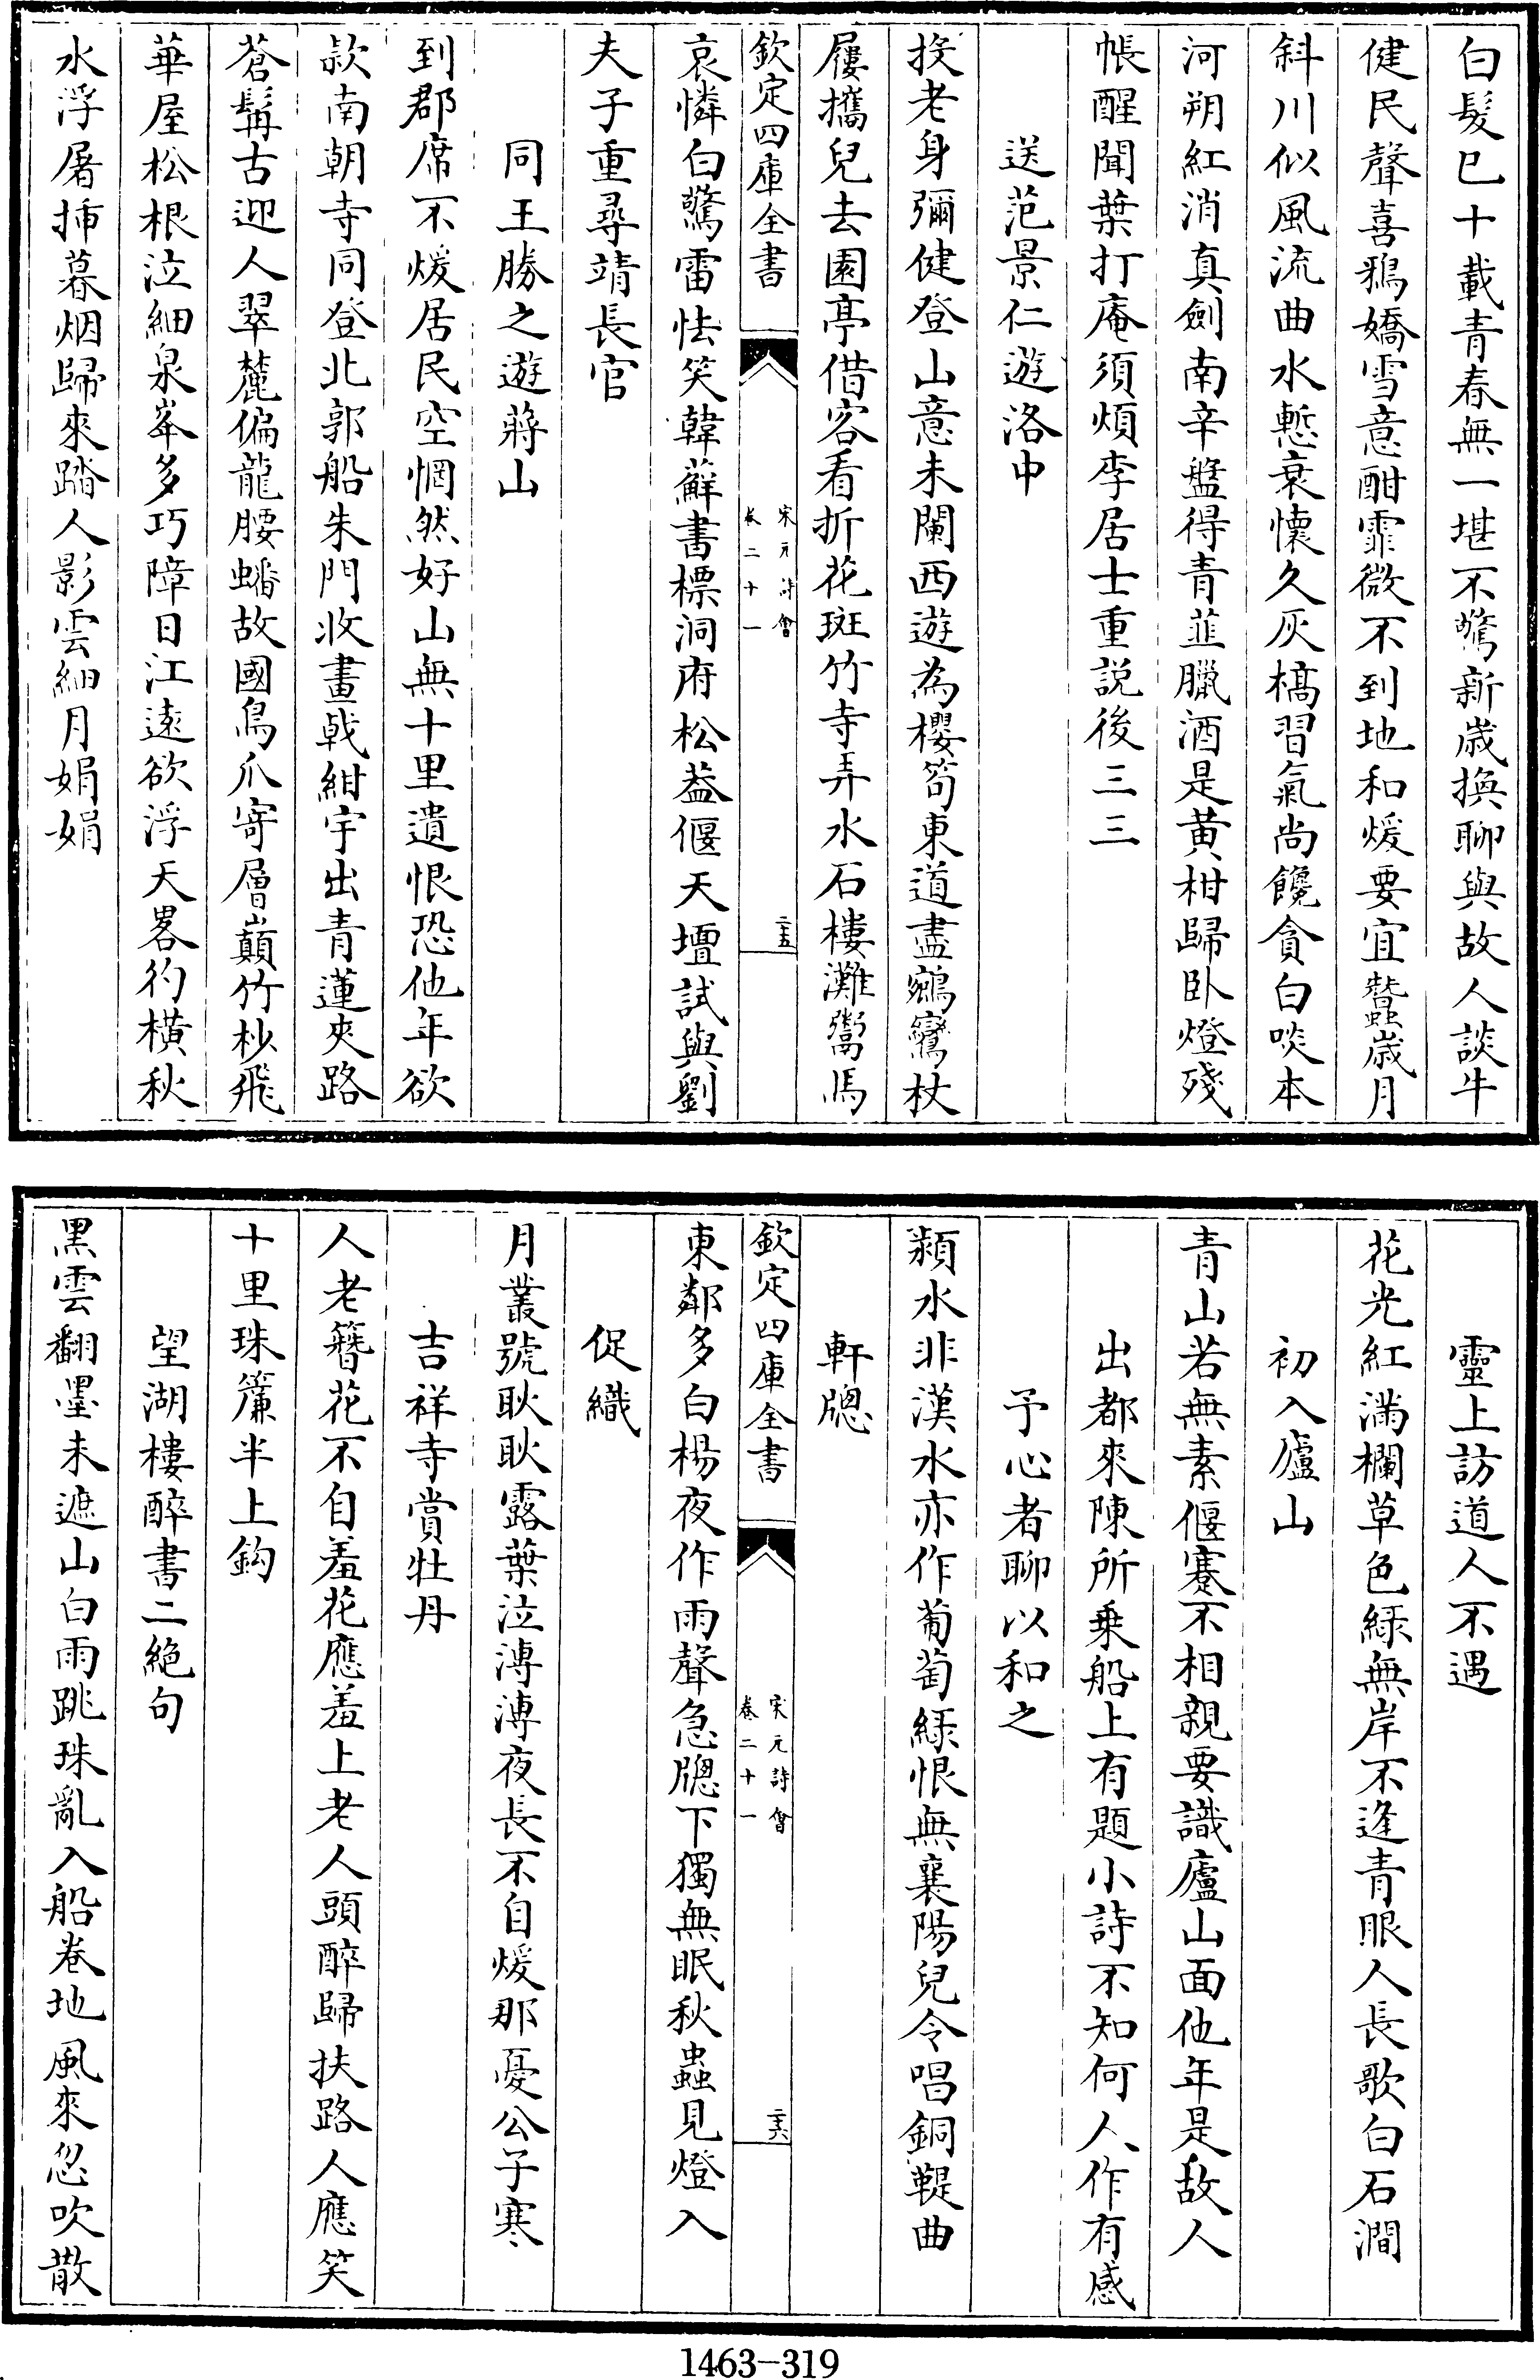 白髮已十載青春無一堪不驚新歲換聊與故人談牛
健民聲喜鴉嬌雪意酣霏微不到地和煖要宜蠶歲月
斜川似風流曲水慙衰懷久灰槁習氣尚饞貪白啖本
河朔紅消真劍南辛盤得青韮臘酒是黃柑歸卧燈殘
帳醒聞葉打庵須煩李居士重説後三三
送范景仁遊洛中
投老身彌健登山意未闌西遊為櫻筍東道盡鵷鸞杖
屨攜兒去園亭借客看折花斑竹寺弄水石樓灘鬻馬
欽定四庫全書
宋元詩會
卷二十一
二五
哀憐白驚雷怯笑韓蘚書標洞府松葢偃天壇試與劉
夫子重尋靖長官
同王勝之遊蔣山
到郡席不煖居民空惘然好山無十里遺恨恐他年欲
款南朝寺同登北郭船朱門收畫戟紺宇出青蓮夾路
蒼髯古迎人翠麓偏龍腰蟠故國鳥爪寄層巔竹杪飛
華屋松根泣細泉峯多巧障日江遠欲浮天畧彴橫秋
水浮屠揷暮烟歸來踏人影雲細月娟娟
靈上訪道人不遇
花光紅滿欄草色緑無岸不逢青眼人長歌白石澗
初入廬山
青山若無素偃蹇不相親要識廬山面他年是故人
出都來陳所乗船上有題小詩不知何人作有感
予心者聊以和之
潁水非漢水亦作葡萄緑恨無襄陽兒令唱銅鞮曲
軒牕
欽定四庫全書
宋元詩會
卷二十一
二六
東鄰多白楊夜作雨聲急牕下獨無眠秋蟲見燈入
促織
月叢號耿耿露葉泣漙漙夜長不自煖那憂公子寒
吉祥寺賞牡丹
人老簪花不自羞花應羞上老人頭醉歸扶路人應笑
十里珠簾半上鈎
望湖樓醉書二絶句
黑雲翻墨未遮山白雨跳珠亂入船卷地風來忽吹散
1463-319